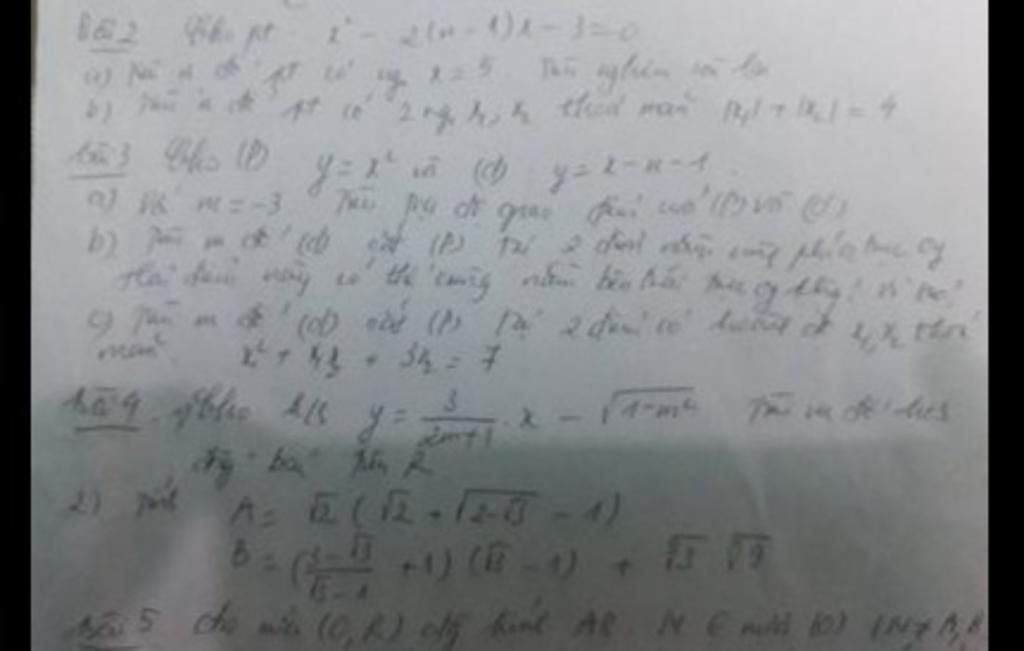 Bài 2 Cho pt x² - 2(m-1)x - 3 = 0
a) Tìm m để pt có ng x = 5 Tìm nghiệm còn lại
b) Tìm m để pt có 2 ng x₁, x₂ thoả mãn |x₁| + |x₂| = 4
Bài 3 Cho (P) y = x² và (d) y = x - m - 1
a) Với m = -3 Tìm toạ độ giao điểm của (P) và (d)
b) Tìm m để (d) cắt (P) tại 2 điểm nằm cùng phía trục Oy
Hai điểm này có thể cùng nằm bên trái trục Oy không? Vì sao?
c) Tìm m để (d) cắt (P) tại 2 điểm có hoành độ x₁, x₂ thoả
mãn x² + x₁x₂ + 3x₂ = 7
Bài 4 Cho h/s y = 3/(2m+1) . x - √(1-m²) Tìm m để h/s
đồng biến trên R
2) Tính A = √2 (√2 + √(2-√3) - 1)
B = ((3-√3)/(√3-1) + 1) (√3 - 1) + ∛3 ∛9
Bài 5 Cho nửa (O, R) đg kính AB. M ∈ nửa (O) (M ≠ A, B